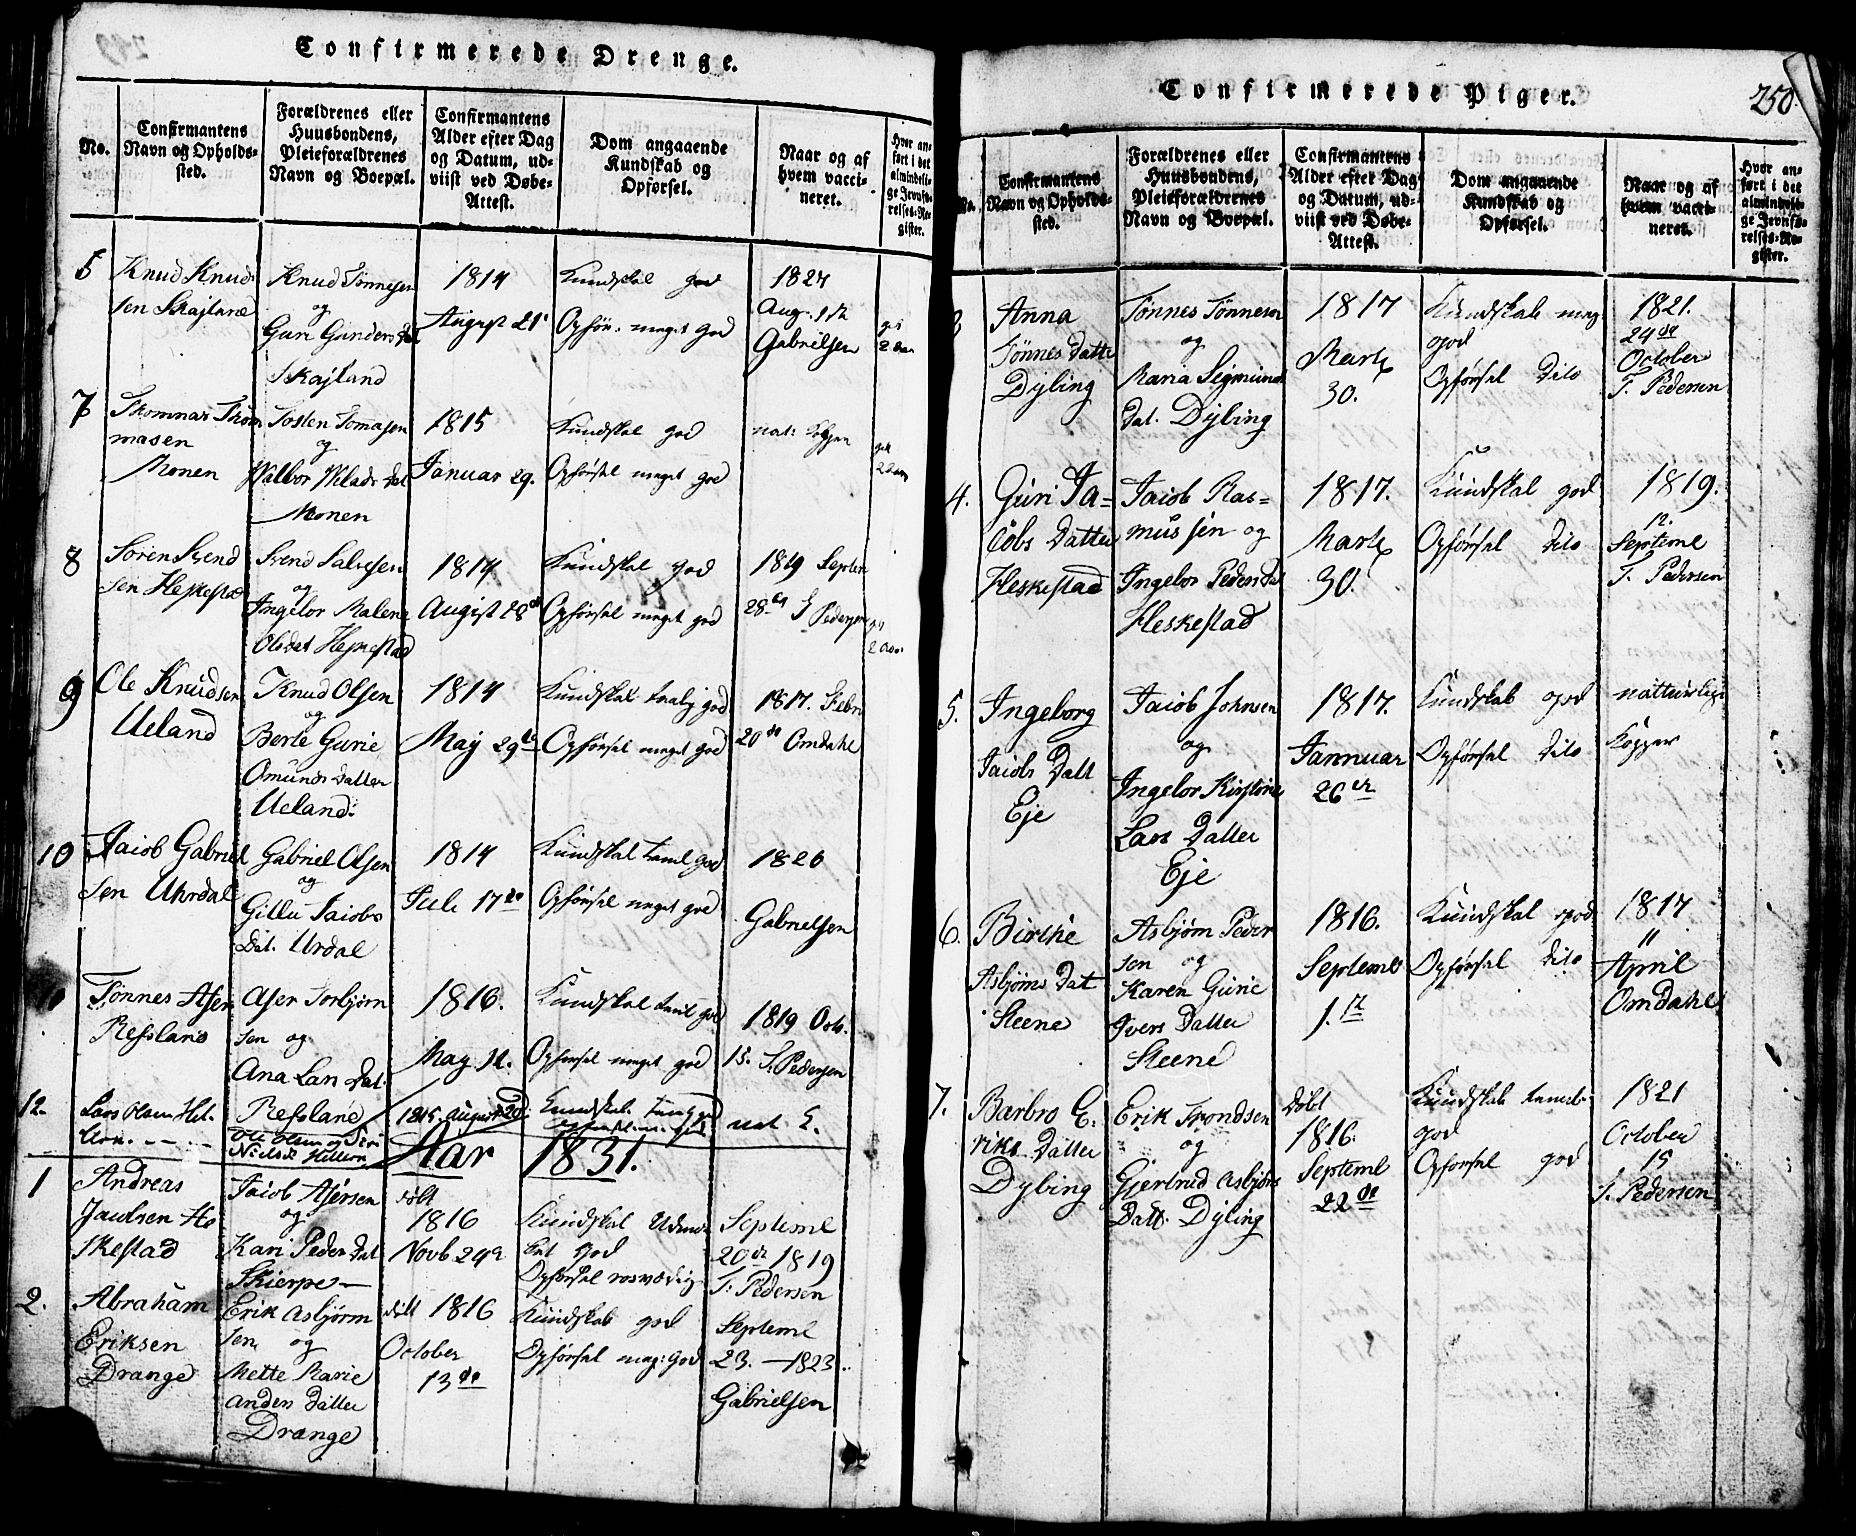 Confirmerede Drenge.
No.
Confirmantens
Navn og Opholds-
sted.
Forældrenes eller
Huusbondens,
Pleieforældrenes
Navn og Boepæl.
Confirmantens
Alder efter Dag
og Datum, ud-
viist ved Døbe-
Attest.
Dom angaaende
Kundskab og
Opførsel.
Naar og af
hvem vacci-
neret.
Hvor an-
ført i det
almindeli-
ge Jevnfø-
relses-Re-
gister.
Knud Knud
sen Skajland
Knud Tønnesen
og
Guri Gunders Dat
Skajland
1814
August 21
Kundskab god
Opfør: meget god
1824
Aug.
Gabrielsen
7
Thomas Thom
masen
Monen
Tosten Tomasen
og
Monen
1815
Januar 29.
Kundskab god
Opførsel meget god
nat:
8
Søren Svend
sen Heskestad
Svend Salvesen
og
Ingebor Malene
Olsdat Heskestad
1814
August 28
Kundskab god
Opførsel meget god
1819 Septem
28 Pedersen
9
Ole Knudsen
Ueland
Knud Olsen
og
Berte Gurie
Omunds Datter
Ueland:
1814
May 29de
Kundskab god
Opførsel meget god
1817. Febr
20de Omdahl
10
Jaiob Gabriel
sen Uhrdal
Gabriel Olsen
og
Jaiobs
Dat. Urdal
1814
Juli 17de
Kundskab teml god
Opførsel meget god
1820
Gabrielsen
Tønnes Asen
Refsland
Asen Torbjørn
sen og
Ana Lars Dat.
Refsland
1816.
May 11.
Kundskab teml god
Opførsel meget god
1819 Octo.
15. T. Pedersen
12.
Lars Olsen Hel
leren.
Ole Olsen og Siri
Niels D. Helleren
1815 August 20
Kundskab god
nat.
Aar 1831.
1
Andreas
Jacobsen He
skestad
Jaiob Asersen
og
Kari Peders Dat
Skierpe
født
1816
Novb 24
Kundskab Udmær
ket god
Opførsel rosværdig
Septemb
20de 1819
T: Pedersen
2.
Abraham
Eriksen
Drange
Erik Asbjørn
sen og
Mette Marie
Anders Datter
Drange
født 1816
October
13de
Kundskab god
Opførsel meg: God
Septemb
23. — 1823.
Gabrielsen
Confirmerede Piger.
250.
No.
Confirmantens
Navn og Opholds-
sted.
Forældrenes eller
Huusbondens,
Pleieforældrenes
Navn og Boepæl.
Confirmantens
Alder efter Dag
og Datum, ud-
viist ved Døbe-
Attest.
Dom angaaende
Kundskab og
Opførsel.
Naar og af
hvem vacci-
neret.
Hvor an-
ført i det
almindeli-
ge Jevnfø-
relses-Re-
gister.
Anna
Tønnes Datter
Dybing
Tønnes Tønnesen
og
Maria Sigmund
Dat. Dybing
1817
Marts
30.
Kundskab meg
god
Opførsel dito
1821.
24de
October
T. Pedersen
4.
Guri Ja-
cobs Datter
Heskestad
Jaiob Ras-
mussen og
Ingebor Peders Dat
Heskestad
1817.
Marts
30.
Kundskab god
Opførsel dito
1819.
12.
Septemb
T. Pedersen
5.
Ingeborg
Jaiobs Datt
Eje
Jaiob Johnsen
og
Ingebor Kirstine
Lars Datter
Eje
1817.
Jannuar
26
Kundskab god
Opførsel dito
natturlige
Kopper
6.
Birthe
Asbjørns Dat
Steene
Asbjørn Peder
sen og
Karen Gurie
Ivers Datter
Steene
1816.
Septemb
1.
Kundskab god
Opførsel dito
1817
11
April
Omdahl
7.
Barbro E.
riks Datter
Dybing
Erik Trondsen
og
Gjertrud Asbjørns
Datt. Dybing
Døbt
1816.
Septemb
22de
Kundskab temel
god
Opførsel god
1821
October
15
T. Pedersen